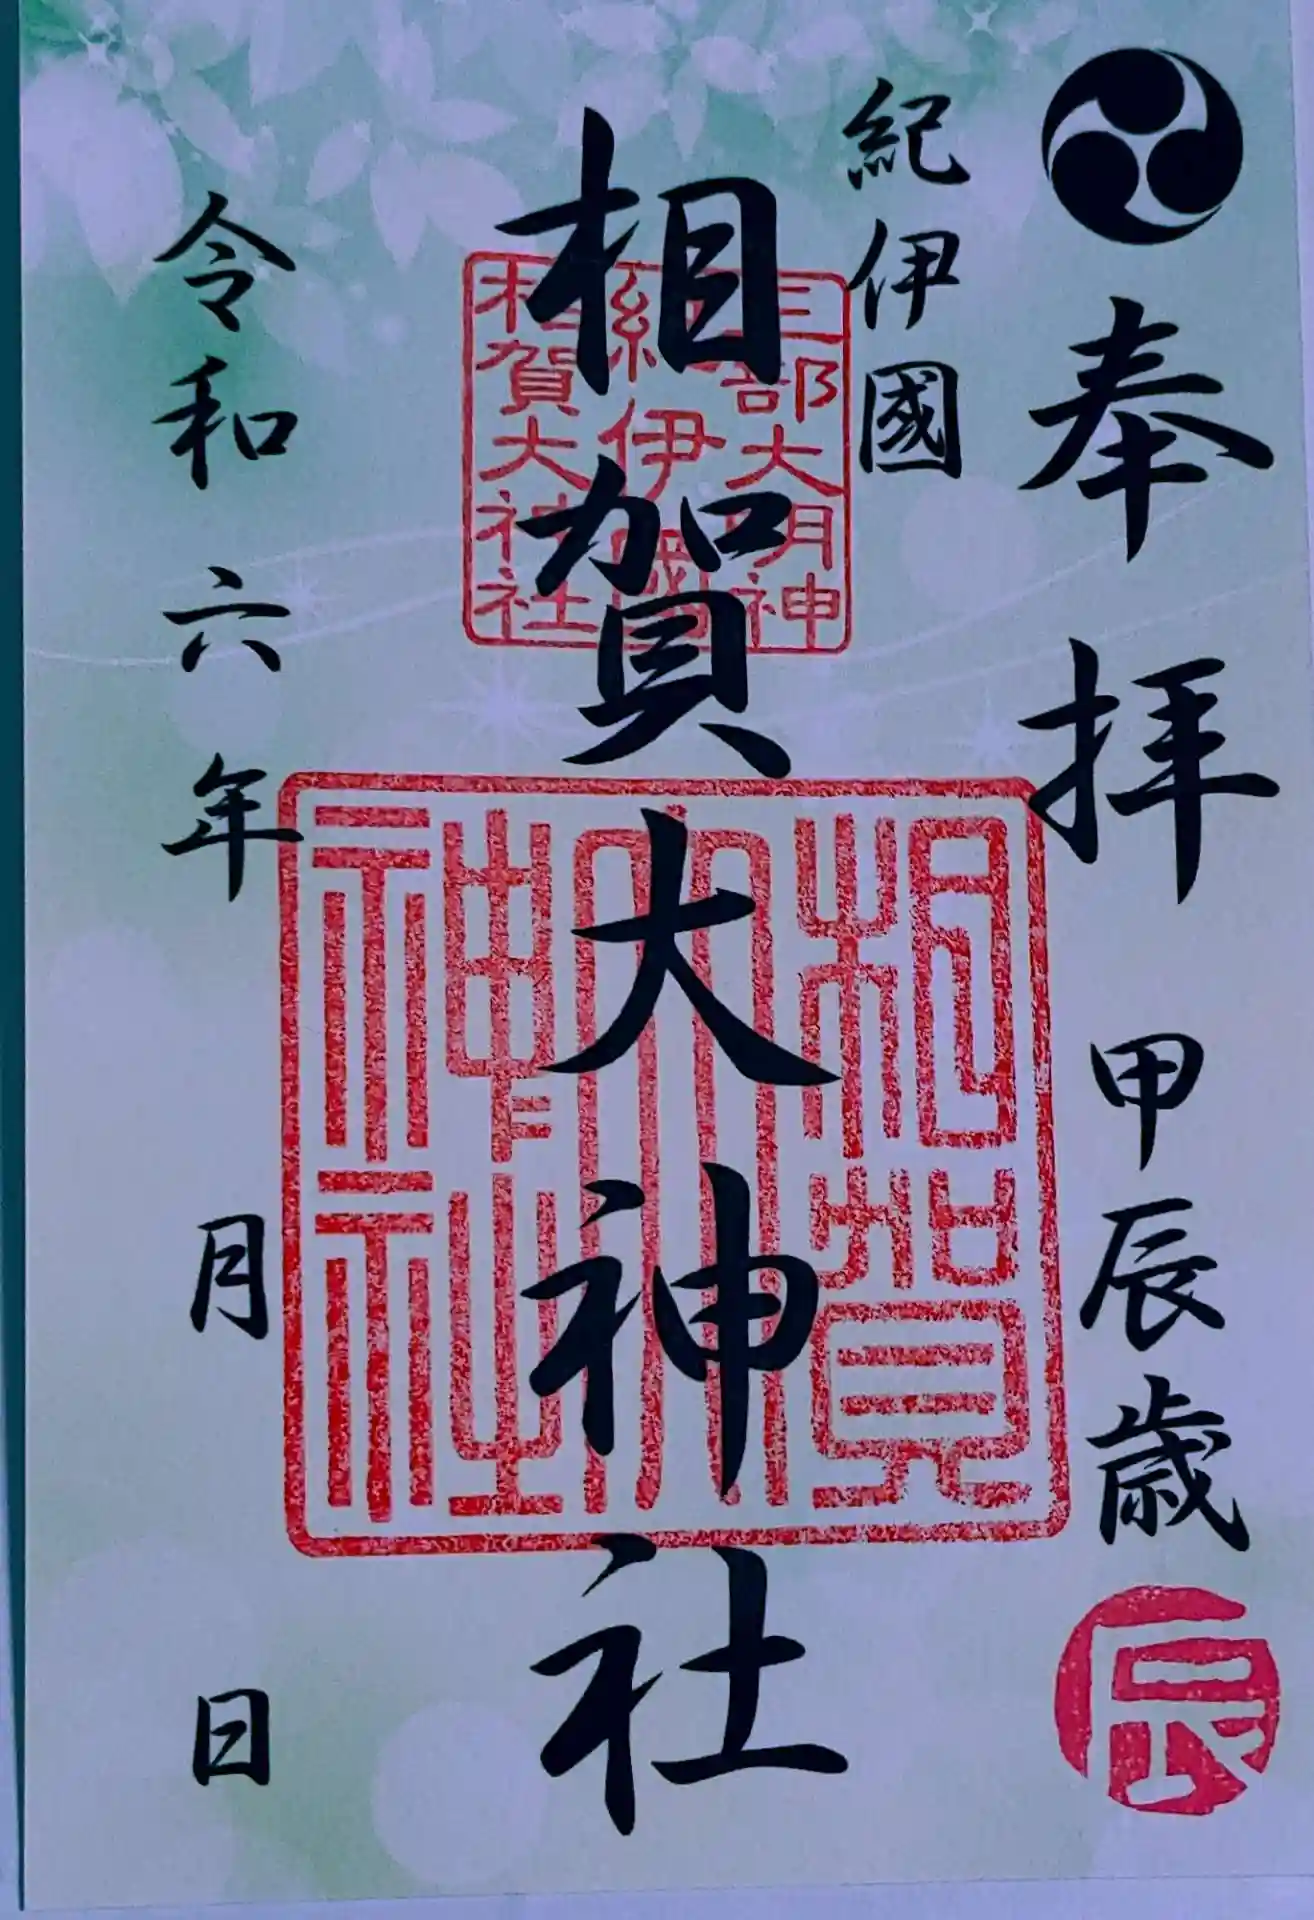 奉拝 甲辰歳
辰
紀伊國
相賀大神社
三部大明神
紀伊國
相賀大神社
相賀
大
神社
令和六年 月 日